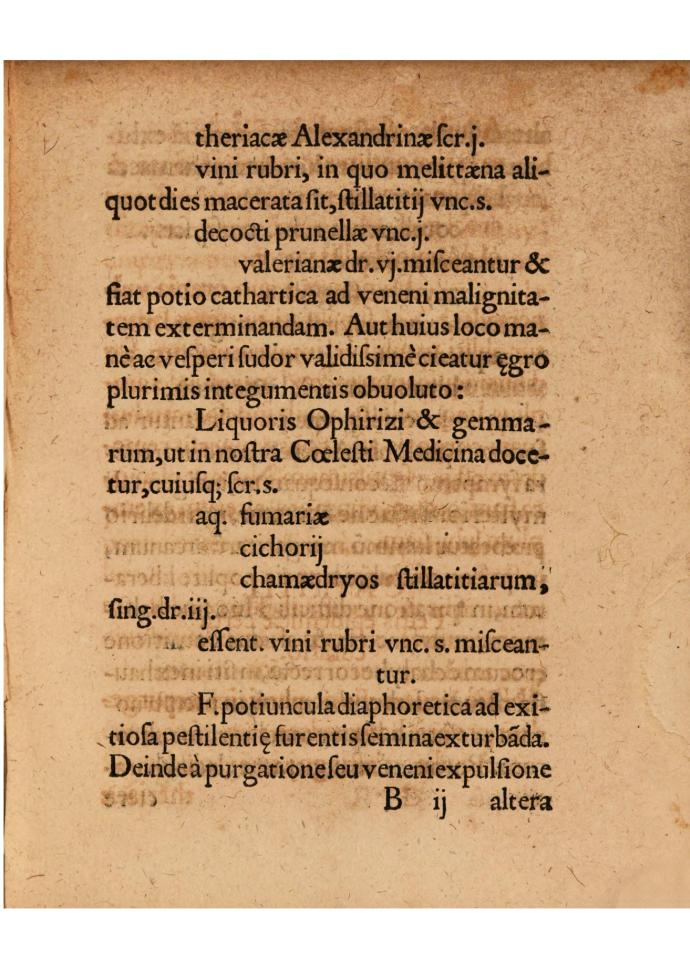 theriacæ Alexandrinæ ſcr.j.
vini rubri, in quo melittæna ali-
quot dies macerata ſit, ſtillatitij vnc.s.
decocti prunellæ vnc.j.
valerianæ dr. vj. miſceantur &
fiat potio cathartica ad veneni malignita-
tem exterminandam. Aut huius loco ma-
nè ac veſperi ſudor validiſsimè cieatur ęgro
plurimis integumentis obuoluto:
Liquoris Ophirizi & gemma-
rum, ut in noſtra Cœleſti Medicina doce-
tur, cuiuſq; ſcr.s.
aq. fumariæ
cichorij
chamædryos ſtillatitiarum,
ſing. dr. iij.
eſſent. vini rubri vnc. s. miſcean-
tur.
F. potiuncula diaphoretica ad exi-
tioſa peſtilentię furentis ſemina exturbãda.
Deinde à purgatione ſeu veneni expulſione
B ij altera